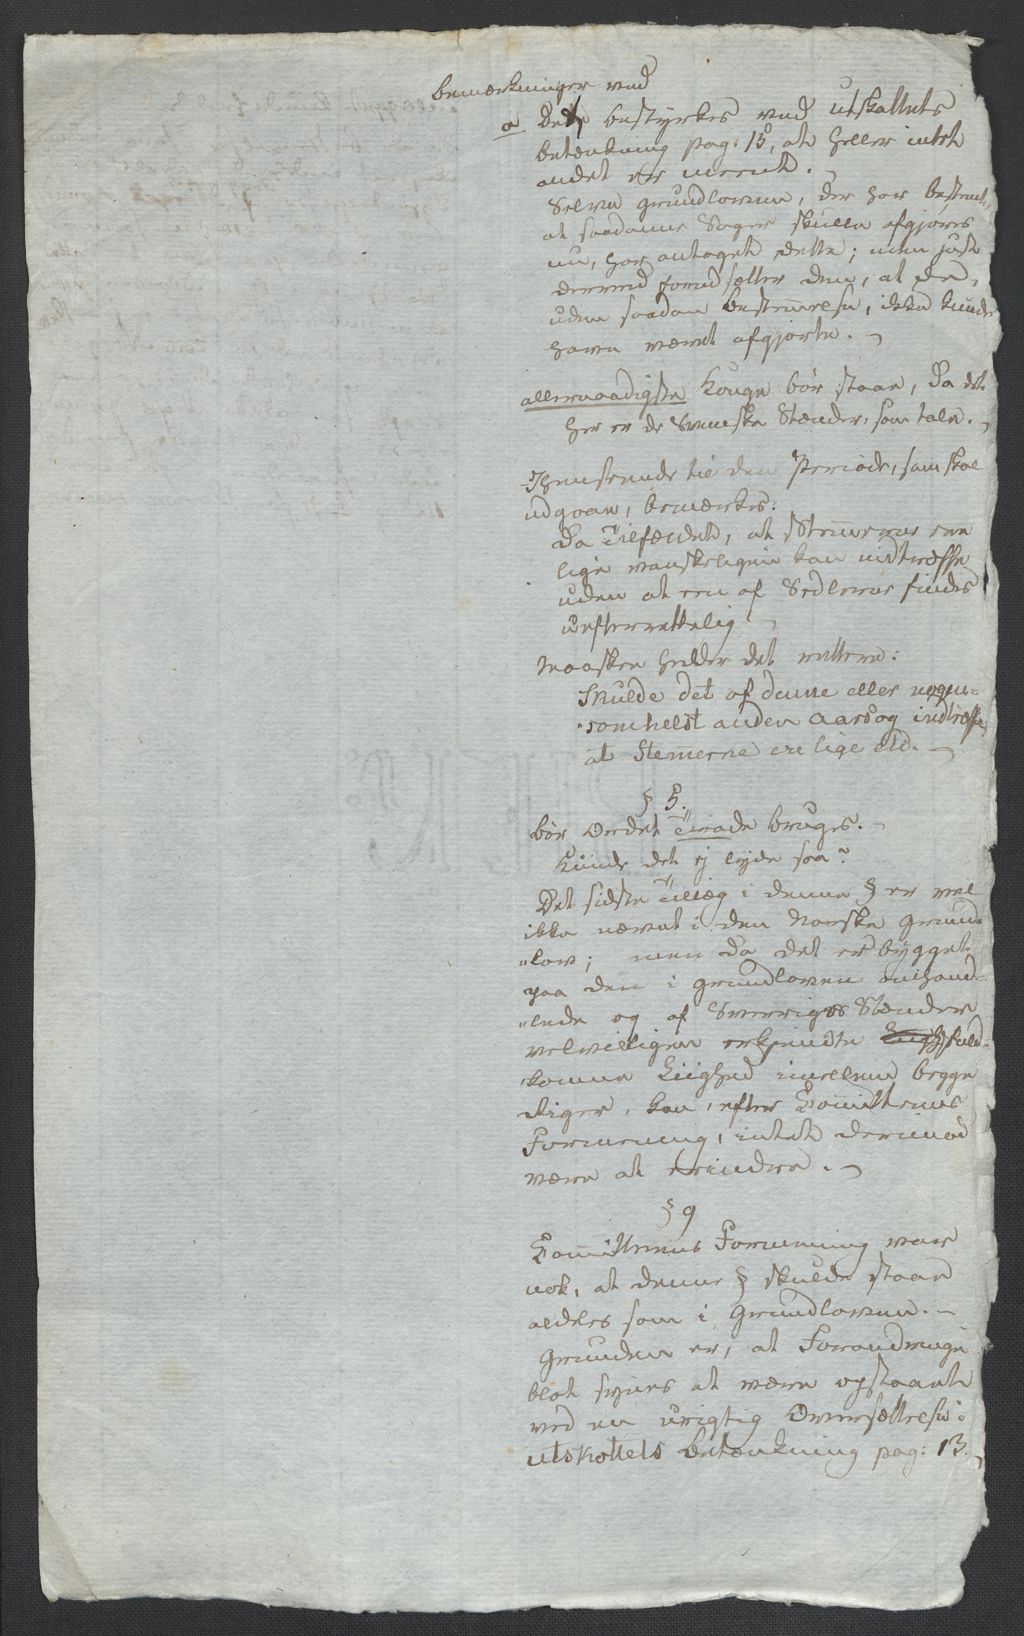 bemærkninger ved
a Det bestyrkes ved utskottets
betænkning pag: 15, at heller intet
andet er meent. –
Selve grundloven, der har bestemt,
at saadanne Sager skulle afgjøres
nu, har antaget dette; men just
derved forudsætter den, at de,
uden saadan bestem̅else, ikke kunde
have været afgjorte. –
allernaadigste Konge bør staae, da det
her er de Svenske Stænder, som tale. –
Henseende til den Periode, som skal
udgaae, bemærkes:
Da Tilfældet, at Stem̅erne ere
lige vanskeligen kan indtræffe
uden at een af Sedlerne findes
uefterrettelig –
Maaskee heller det rettere:
Skulde det af denne eller nogen=
somhelst anden Aarsag indtræffe,
at Stem̅erne ere lige etc. –
§ 5.
bør Ordet Tirade bruges. –
Kunde det ej lyde saa?
Det sidste Tillæg i denne § er vel
ikke nævnt i den Norske Grund=
=lov; men da det er bygget
paa den i grundloven omhand=
=lede og af Sverriges Stænder
velvilligen erkjendte fuld=
komne Liighed imellem begge
Riger, kan, efter Com̅itteens
Formening, intet derimod
være at erindre. –
§ 9
Com̅itteens Formening var
nok, at denne § skulde staae
aldeles som i Grundloven. –
Grunden er, at Forandringen
blot synes at være opstaaet
ved en urigtig Oversættelse i
utskottets betænkning pag: 13. –